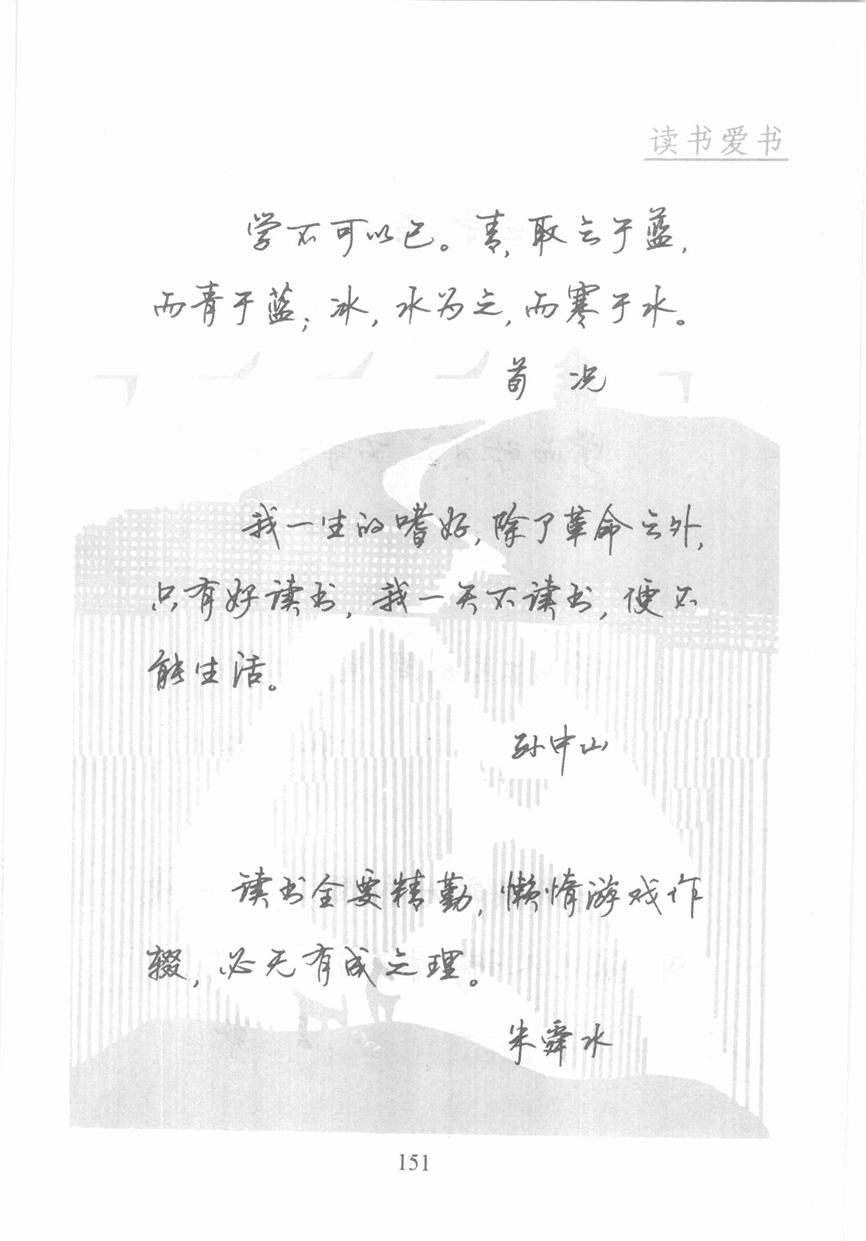 读书爱书
学不可以已。青，取之于蓝，
而青于蓝；冰，水为之，而寒于水。
荀 况
我一生的嗜好，除了革命之外，
只有好读书，我一天不读书，便不
能生活。
孙中山
读书全要精勤，懒惰游戏作
辍，必无有成之理。
朱舜水
151